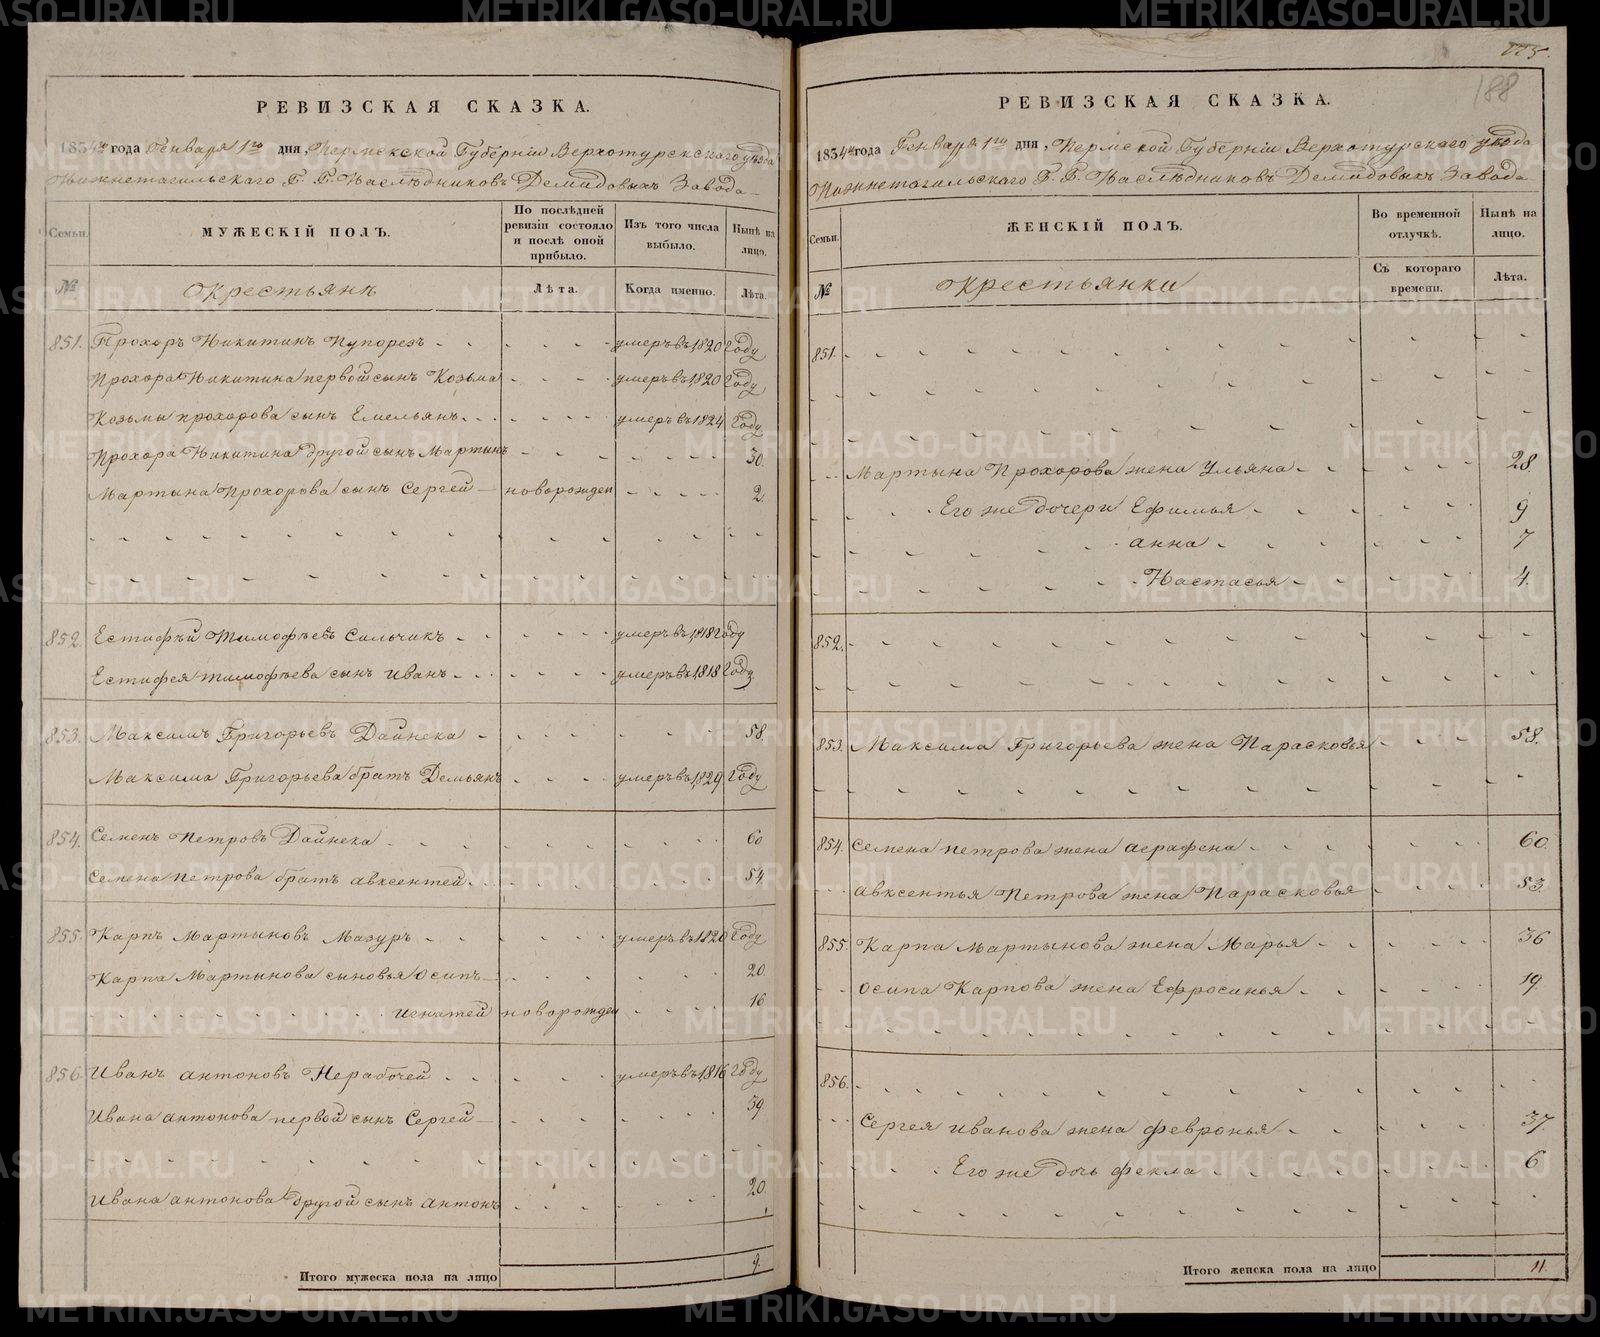 РЕВИЗСКАЯ СКАЗКА.
1834го года Генваря 1го дня, Пермскской Губерніи Верхотурскскаго уезда
Нижнетагильскаго Г. Г. Наследниковъ Демидовыхъ Завода
Семьи.
МУЖЕСКІЙ ПОЛЪ.
По послѣдней ревизіи состояло и послѣ оной прибыло.
Изъ того числа выбыло.
Нынѣ на лицо.
№
Окрестьянъ
Лѣта.
Когда именно.
Лѣта.
851. Прохоръ Никитинъ Пупорезъ умеръ въ 1820 году
Прохора Никитина первой сынъ Козьма умеръ въ 1820 году
Козьмы прохорова сынъ Емельянъ умеръ въ 1824 году
Прохора Никитина другой сынъ Мартынъ 30.
Мартына Прохорова сынъ Сергей новорожден 2.
852. Естифѣй Тимофѣевъ Сильчикъ умеръ въ 1818 году
Естифея тимофѣева сынъ иванъ умеръ въ 1818 году
853. Максимъ Григорьевъ Дайнека 58.
Максима Григорьева братъ Демьянъ умеръ въ 1829 году
854. Семенъ Петровъ Дайнека 60
Семена петрова братъ авксентей 54.
855. Карпъ Мартыновъ Мазуръ умеръ въ 1820 году
Карпа Мартынова сыновья Осипъ 20.
игнатей новорожден 16
856. Иванъ антоновъ Нерабочей умеръ въ 1816 году
Ивана антонова первой сынъ Сергей 39.
Ивана антонова другой сынъ антонъ 20.
Итого мужеска пола на лицо 9.
188
РЕВИЗСКАЯ СКАЗКА.
1834го года Генваря 1го дня, Пермской Губерніи Верхотурскаго уезда
Нижнетагильскаго Г. Г. Наслѣдниковъ Демидовыхъ Завода
Семьи.
ЖЕНСКІЙ ПОЛЪ.
Во временной отлучкѣ.
Нынѣ на лицо.
№
Окрестьянки
Съ котораго времени.
Лѣта.
851.
Мартына Прохорова жена Ульяна 28.
Его же дочери Ефимья 9
анна 7
Настасья 4.
852.
853. Максима Григорьева жена Парасковья 58.
854. Семена петрова жена аграфена 60.
авксентья Петрова жена Парасковья 53.
855. Карпа Мартынова жена Марья 36
осипа Карпова жена Ефросинья 19.
856.
Сергея иванова жена февронья 37.
Его же дочь фекла 6
Итого женска пола на лицо 11.
METRIKI.GASO-URAL.RU